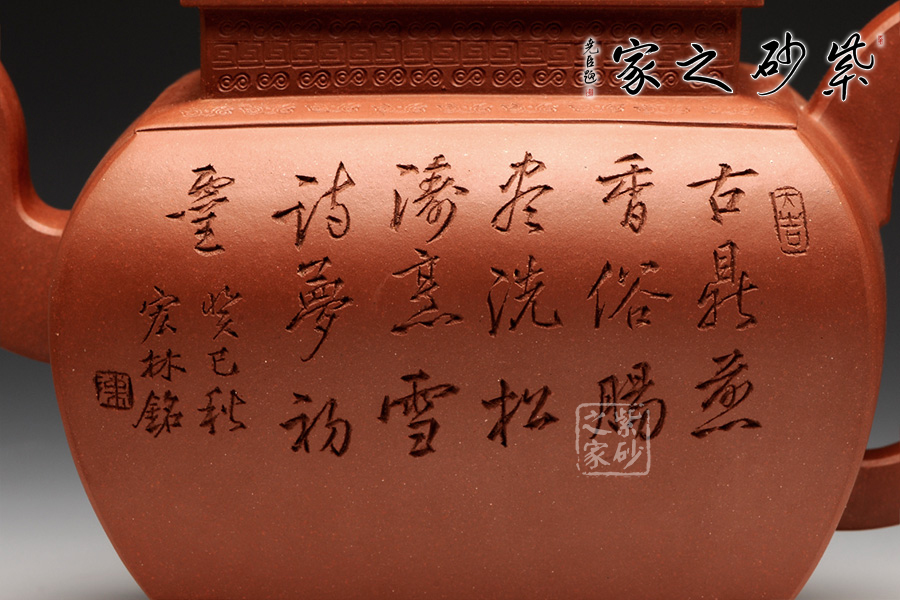 紫砂之家
大吉
古鼎煎
香俗腸
尽洗松
濤烹雪
詩夢初
靈
癸巳秋
宏林銘
紫砂
之家